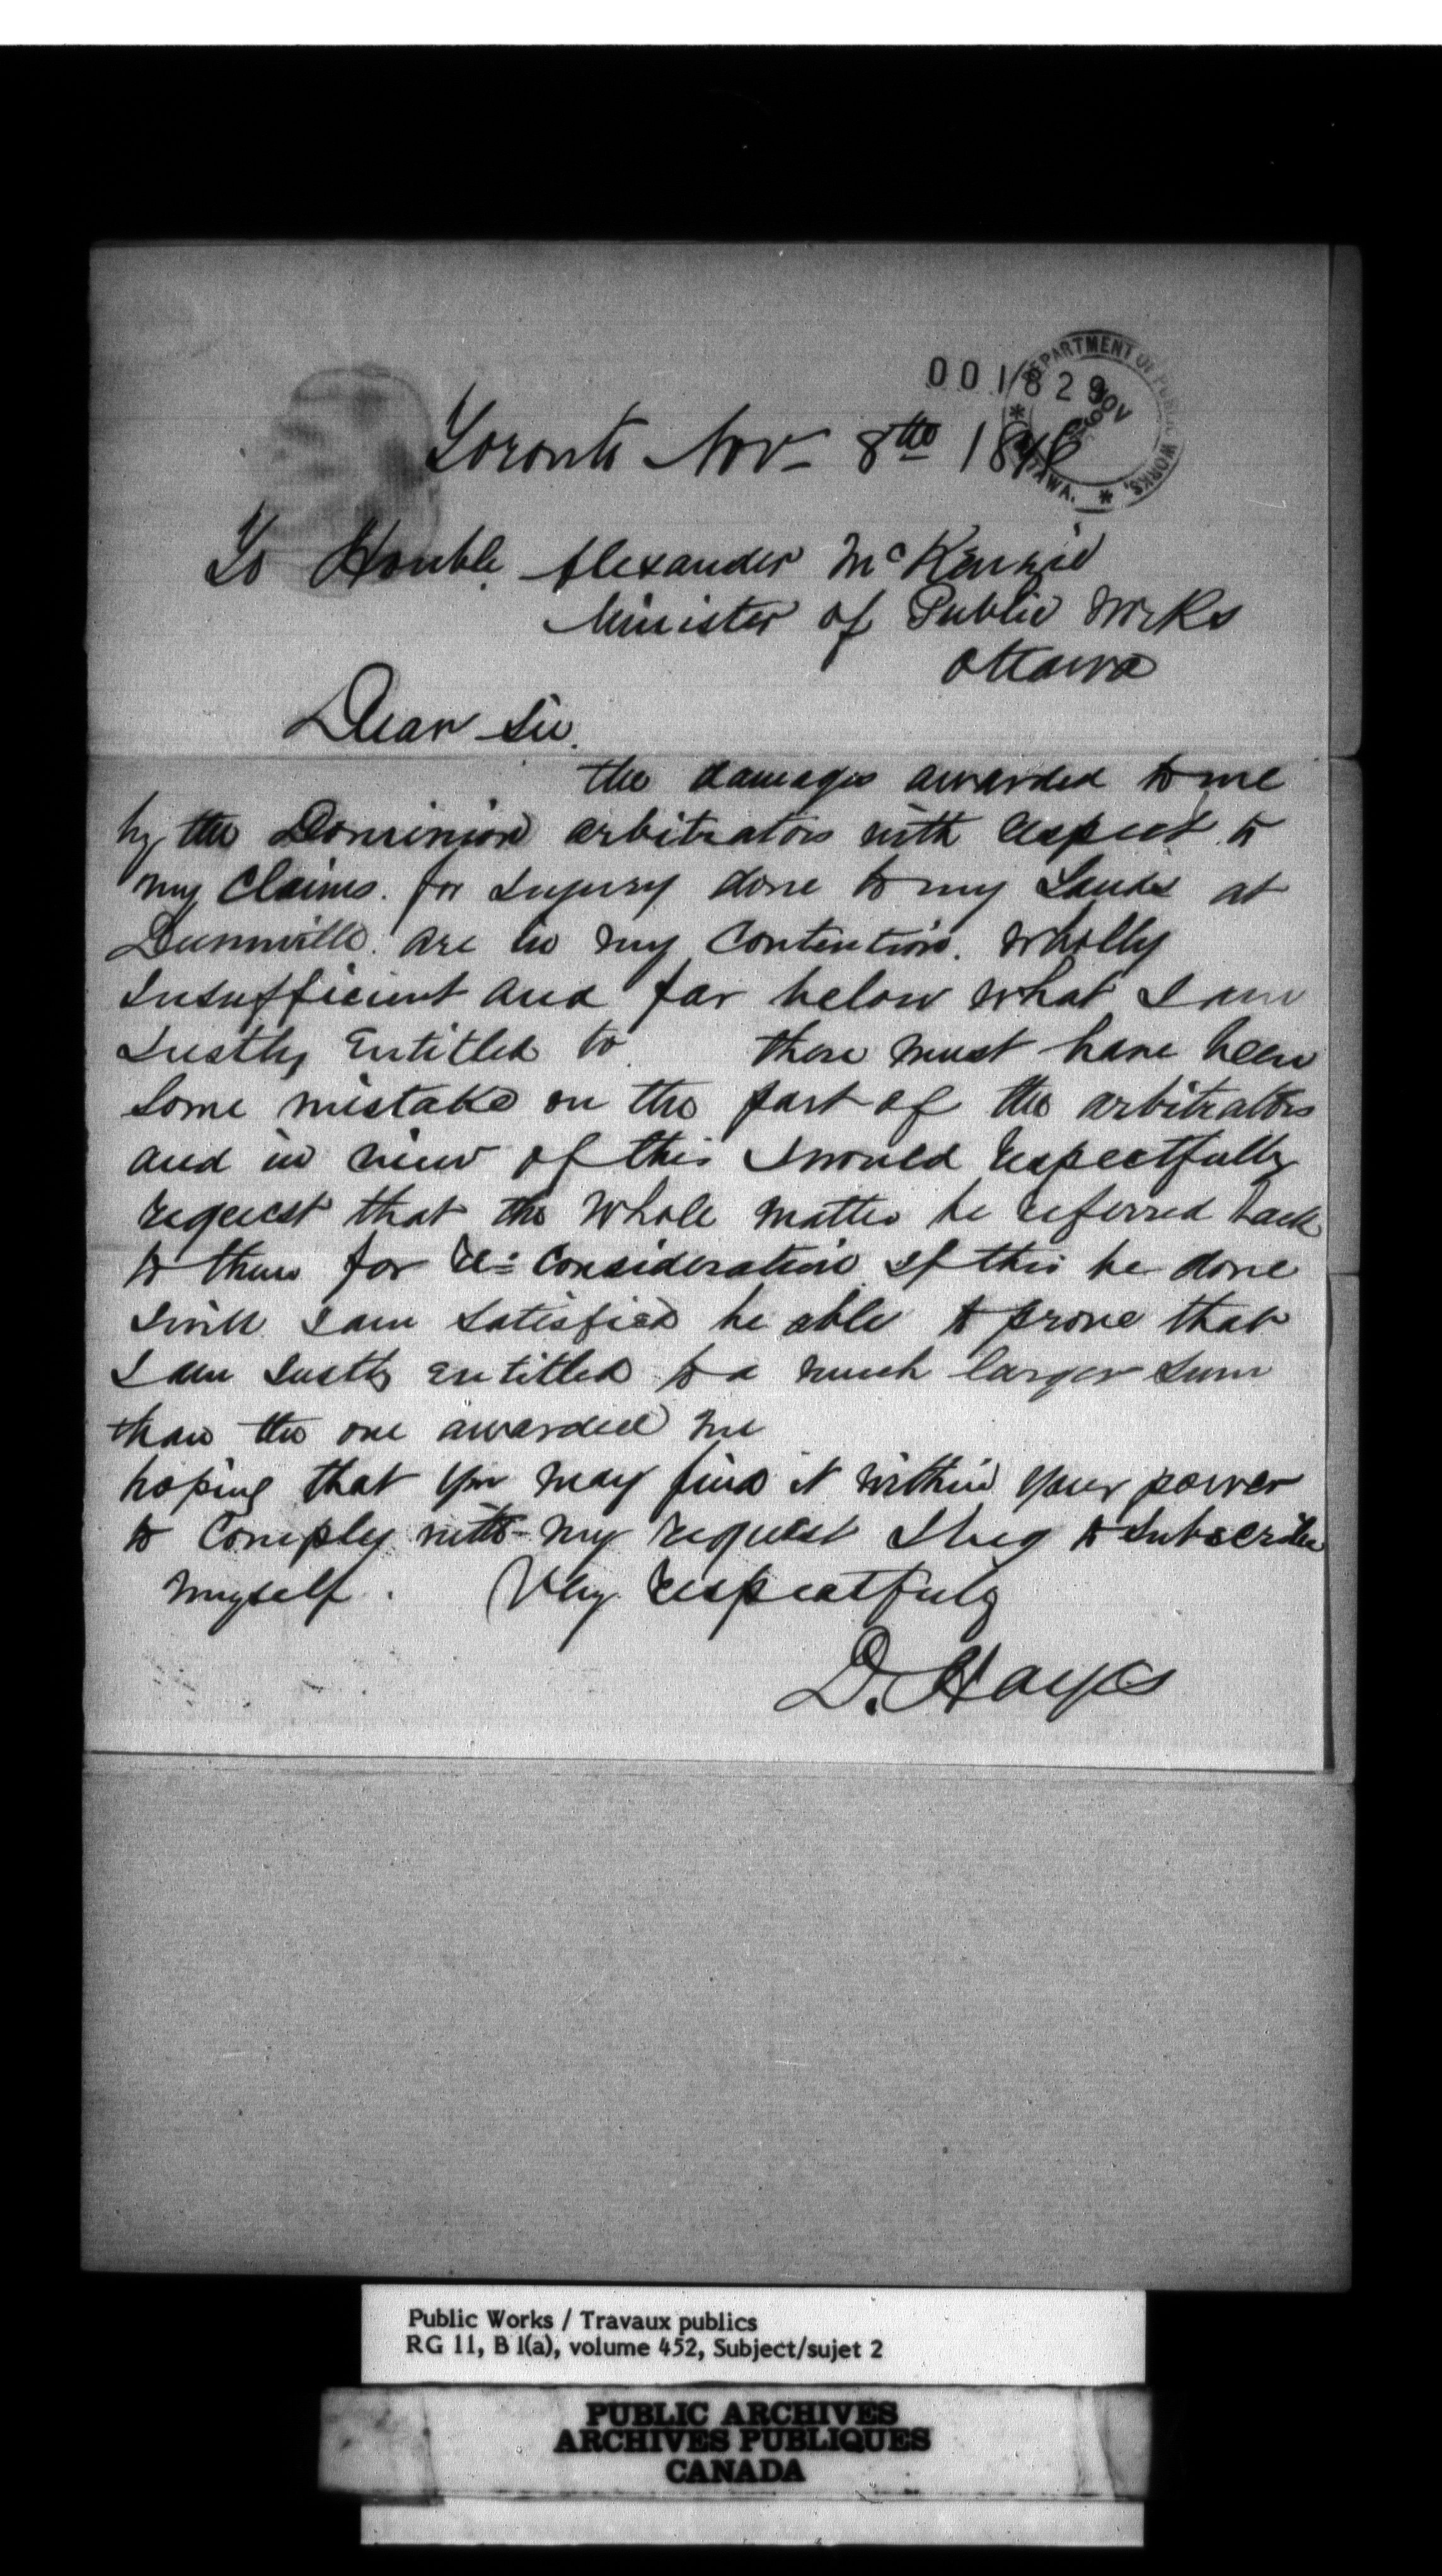 001829
DEPARTMENT OF PUBLIC WORKS,
NOV
* OTTAWA. *
Toronto Nov - 8th
To Honble Alexander McKenzie
Minister of Public Works
Ottawa
Dear Sir.
the damages awarded to me
by the Dominion arbitrators with respect to
my Claims. for Injury done to my Lands at
Dunnville. are in my Contention. wholly
Insufficient and far below what I am
Justly Entitled to there must have been
some mistake on the part of the arbitrators
and in view of this I would respectfully
request that the whole matter be referred back
to them for re=Consideration If this be done
I will I am satisfied be able to prove that
I am Justly entitled to a much larger sum
than the one awarded me
hoping that you may find it within your power
to Comply with my request I beg to subscribe
myself. Very respectfuly
D. Hayes
Public Works / Travaux publics
RG 11, B 1(a), volume 452, Subject/sujet 2
PUBLIC ARCHIVES
ARCHIVES PUBLIQUES
CANADA